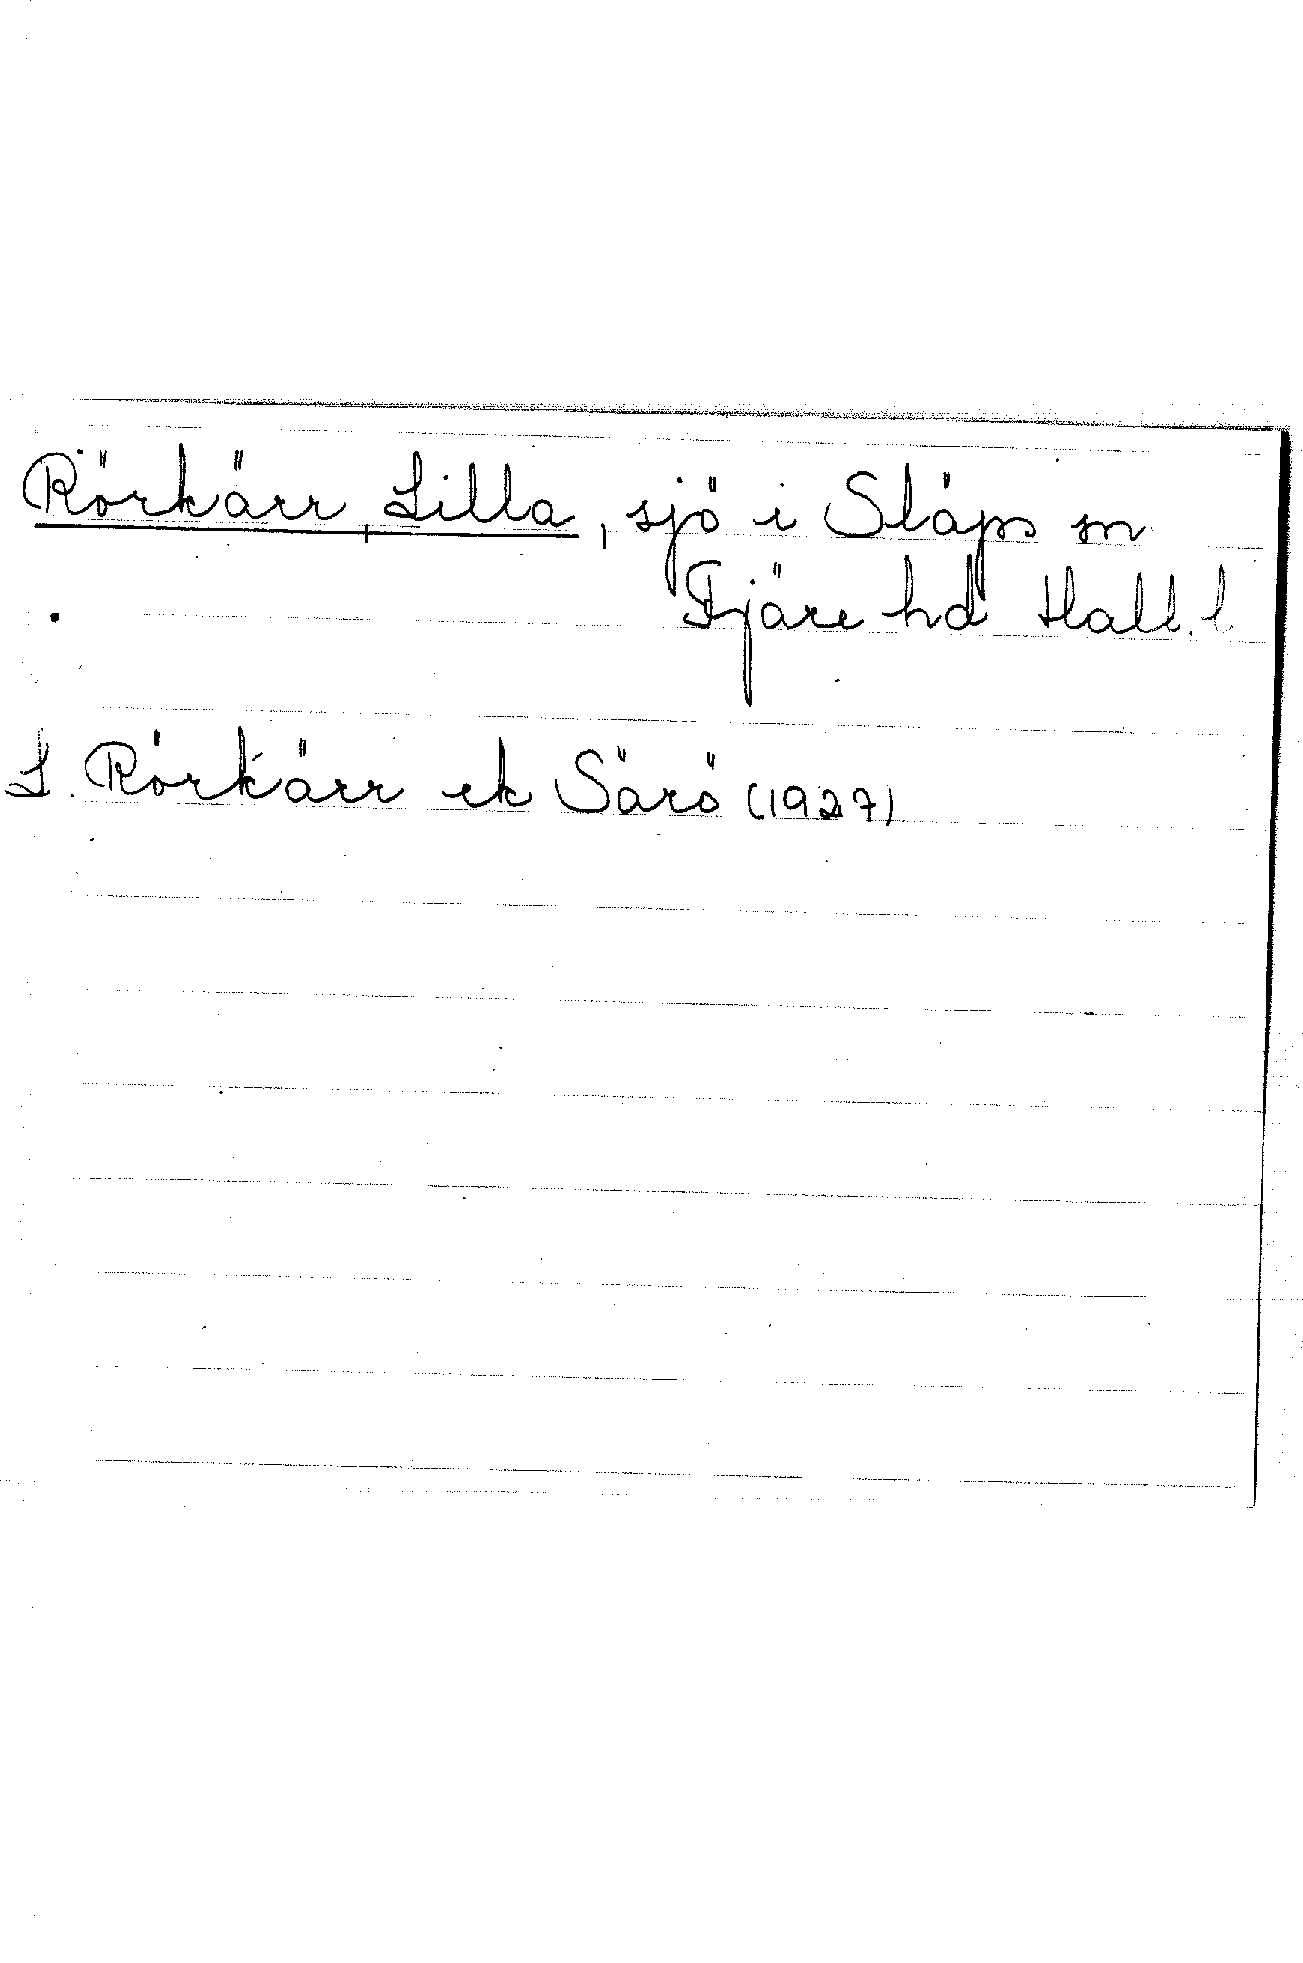 Rörkärr, Lilla, sjö i Släps sn
Fjäre hd Hall. l.
L. Rörkärr ek Särö (1927)